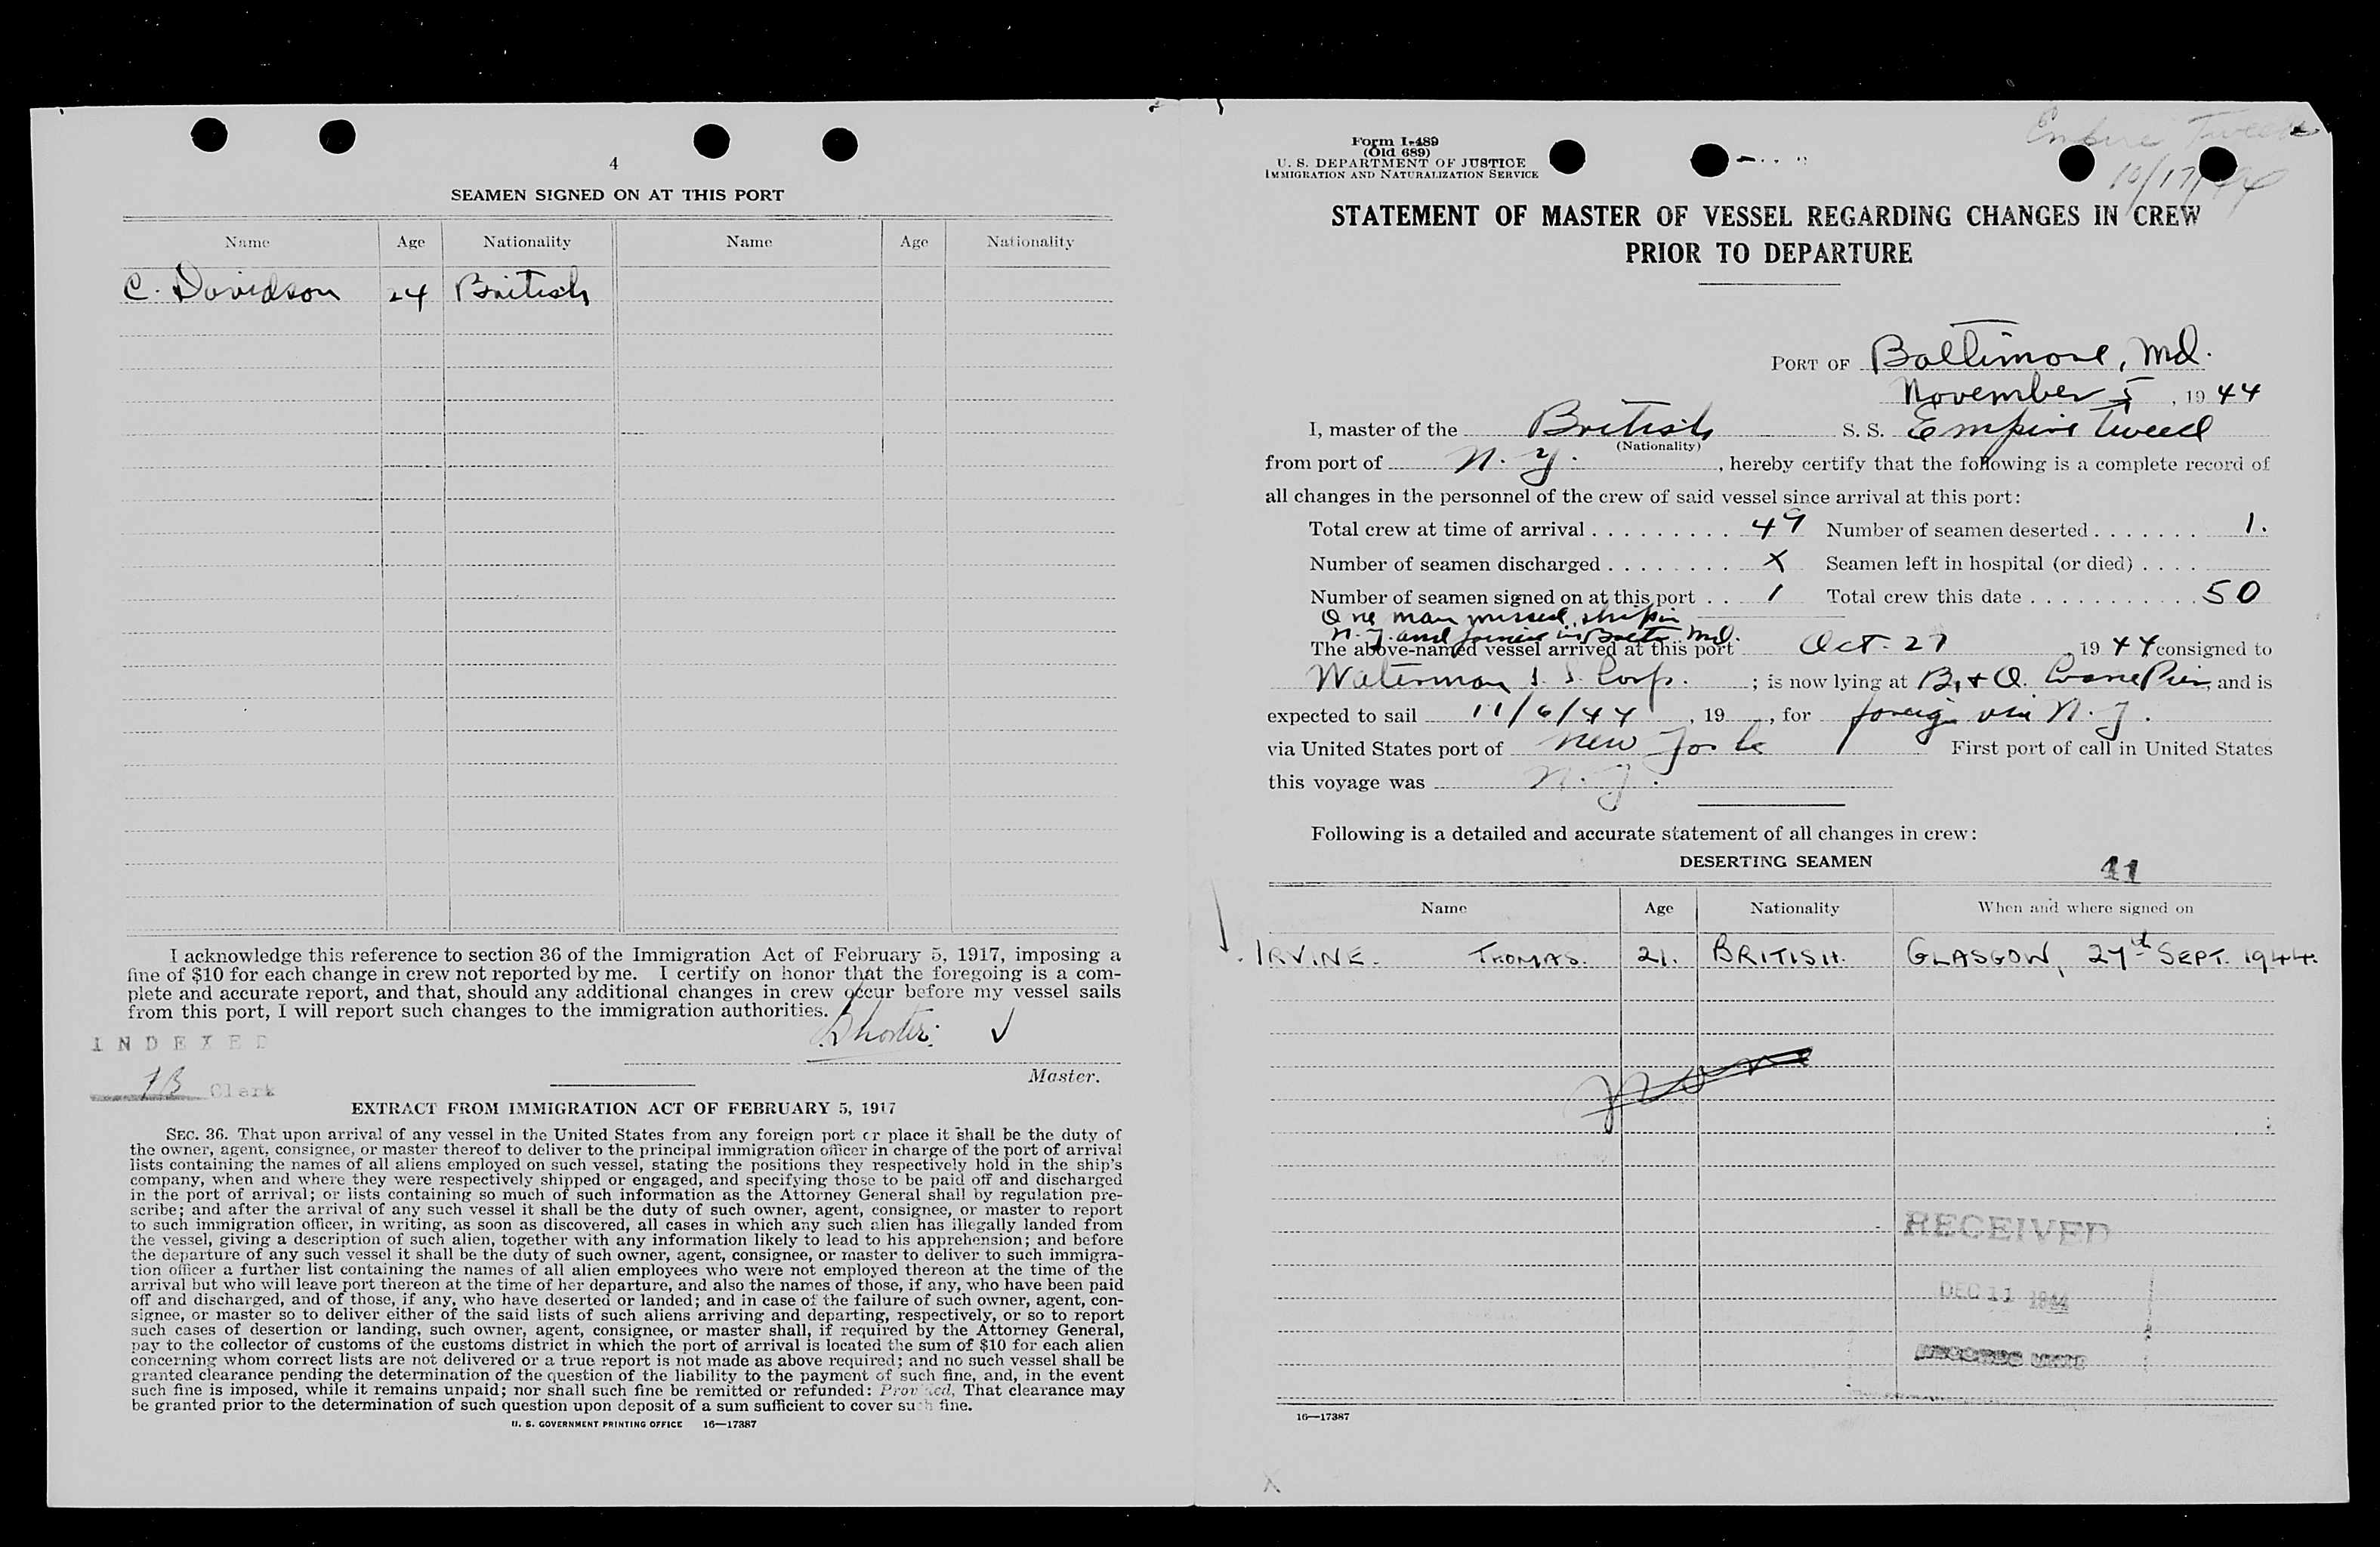 4
SEAMEN SIGNED ON AT THIS PORT
Name Age Nationality Name Age Nationality
C. Davidson 24 British
I acknowledge this reference to section 36 of the Immigration Act of February 5, 1917, imposing a
fine of $10 for each change in crew not reported by me. I certify on honor that the foregoing is a com-
plete and accurate report, and that, should any additional changes in crew occur before my vessel sails
from this port, I will report such changes to the immigration authorities.
INDEXED
Master.
Clerk
EXTRACT FROM IMMIGRATION ACT OF FEBRUARY 5, 1917
SEC. 36. That upon arrival of any vessel in the United States from any foreign port or place it shall be the duty of
the owner, agent, consignee, or master thereof to deliver to the principal immigration officer in charge of the port of arrival
lists containing the names of all aliens employed on such vessel, stating the positions they respectively hold in the ship's
company, when and where they were respectively shipped or engaged, and specifying those to be paid off and discharged
in the port of arrival; or lists containing so much of such information as the Attorney General shall by regulation pre-
scribe; and after the arrival of any such vessel it shall be the duty of such owner, agent, consignee, or master to report
to such immigration officer, in writing, as soon as discovered, all cases in which any such alien has illegally landed from
the vessel, giving a description of such alien, together with any information likely to lead to his apprehension; and before
the departure of any such vessel it shall be the duty of such owner, agent, consignee, or master to deliver to such immigra-
tion officer a further list containing the names of all alien employees who were not employed thereon at the time of the
arrival but who will leave port thereon at the time of her departure, and also the names of those, if any, who have been paid
off and discharged, and of those, if any, who have deserted or landed; and in case of the failure of such owner, agent, con-
signee, or master so to deliver either of the said lists of such aliens arriving and departing, respectively, or so to report
such cases of desertion or landing, such owner, agent, consignee, or master shall, if required by the Attorney General,
pay to the collector of customs of the customs district in which the port of arrival is located the sum of $10 for each alien
concerning whom correct lists are not delivered or a true report is not made as above required; and no such vessel shall be
granted clearance pending the determination of the question of the liability to the payment of such fine, and, in the event
such fine is imposed, while it remains unpaid; nor shall such fine be remitted or refunded: Provided, That clearance may
be granted prior to the determination of such question upon deposit of a sum sufficient to cover such fine.
U. S. GOVERNMENT PRINTING OFFICE 16—17387
Empire Tweed
10/17/44
Form I-489
(Old 689)
U. S. DEPARTMENT OF JUSTICE
IMMIGRATION AND NATURALIZATION SERVICE
STATEMENT OF MASTER OF VESSEL REGARDING CHANGES IN CREW
PRIOR TO DEPARTURE
PORT OF Baltimore, Md.
November 5, 1944
I, master of the British S. S. Empire Tweed
(Nationality)
from port of N. Y., hereby certify that the following is a complete record of
all changes in the personnel of the crew of said vessel since arrival at this port:
Total crew at time of arrival . . . . . . . . . 49 Number of seamen deserted . . . . . . . 1.
Number of seamen discharged . . . . . . . . X Seamen left in hospital (or died) . . . .
Number of seamen signed on at this port . . 1 Total crew this date . . . . . . . . . . . 50
One man missed ship in
N. Y. and joined in Balto. Md.
The above-named vessel arrived at this port Oct. 27, 1944 consigned to
Waterman S. S. Corp. ; is now lying at B. & O. Crane Pier, and is
expected to sail 11/6/44, 19 , for foreign via N. Y.
via United States port of New York First port of call in United States
this voyage was N. Y.
Following is a detailed and accurate statement of all changes in crew:
DESERTING SEAMEN
41
Name Age Nationality When and where signed on
IRVINE. THOMAS. 21. BRITISH. GLASGOW, 27th SEPT. 1944.
None
RECEIVED
DEC 11 1944
16—17387
X